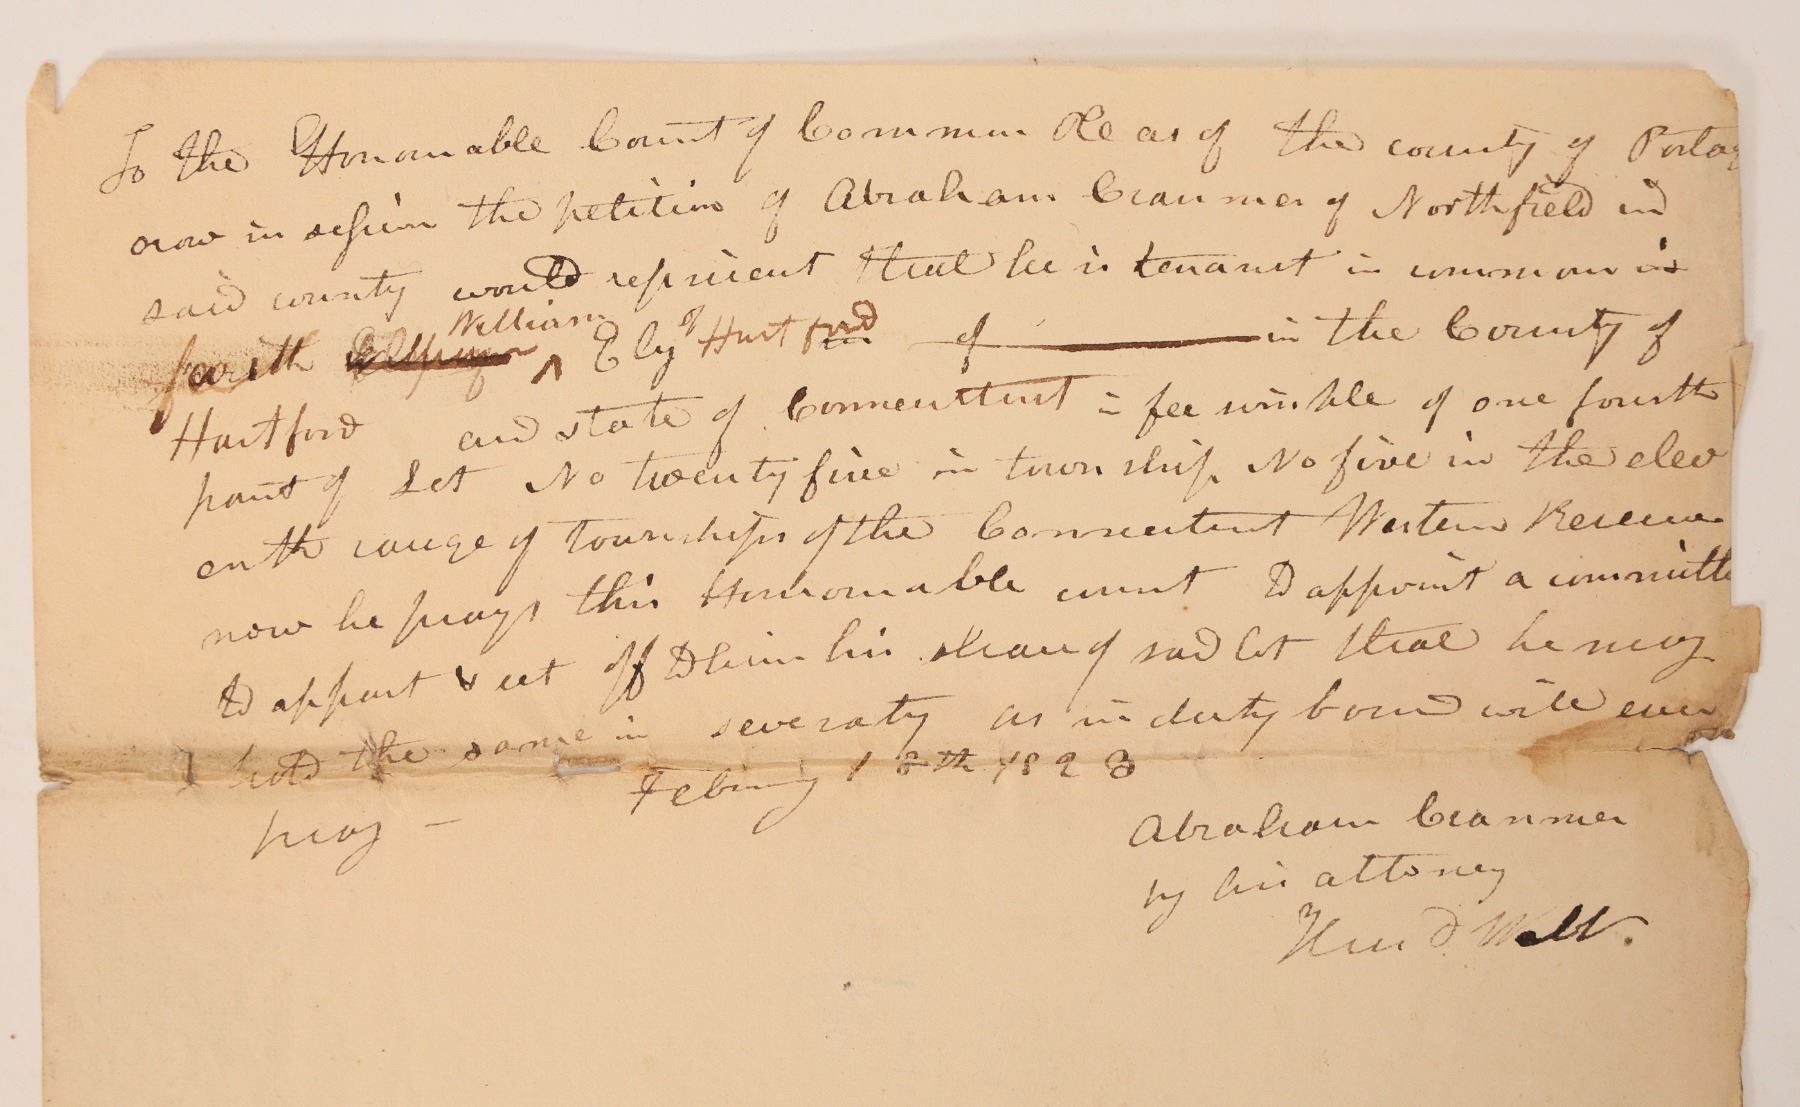 To the Honourable Court of Common Pleas of the county of Portag
now in session the petition of Abraham Cranmer of Northfield in
said county would represent that he is tenant in common in
with William Ely of Hartford of in the County of
Hartford and state of Connecticut in fee simple of one fourth
part of Lot No twenty five in township No five in the elev
enth range of townships of the Connecticut Western Reserve
now he prays this Honourable court to appoint a committe
to appart & set off to him his share of said lot that he may
hold the same in severaty as in duty bound will ever
pray - Februay 18th 1823
Abraham Cranmer
by his attorney